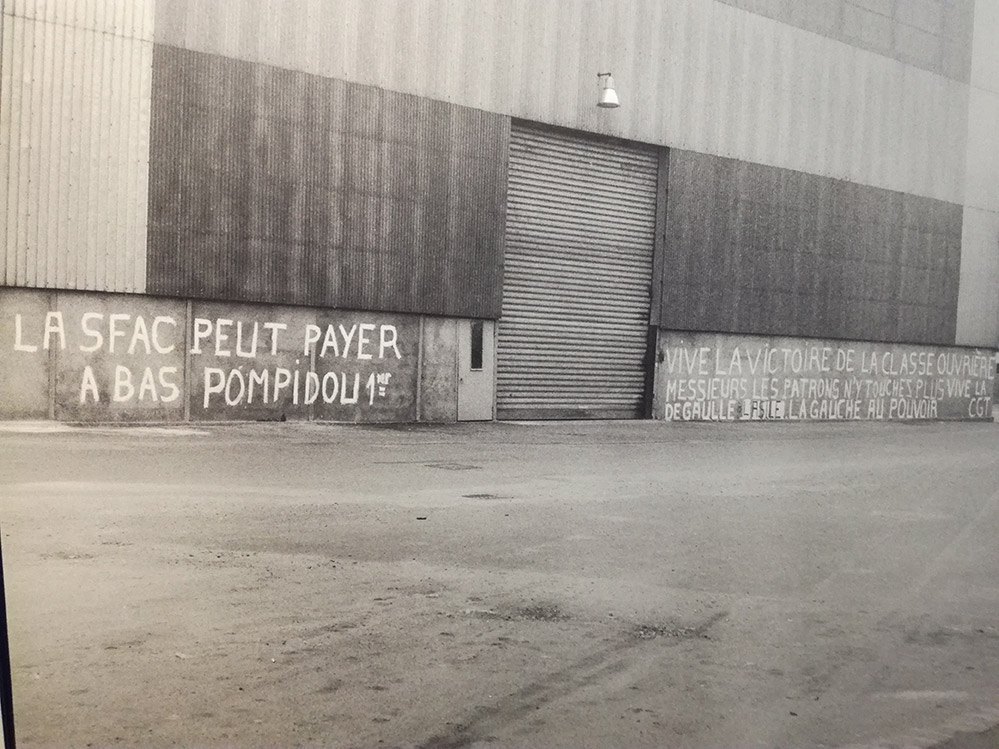 LA SFAC PEUT PAYER
A BAS POMPIDOU 1ER
VIVE LA VICTOIRE DE LA CLASSE OUVRIÈRE
MESSIEURS LES PATRONS N'Y TOUCHES PLUS VIVE LA
DE GAULLE LA GAUCHE AU POUVOIR CGT